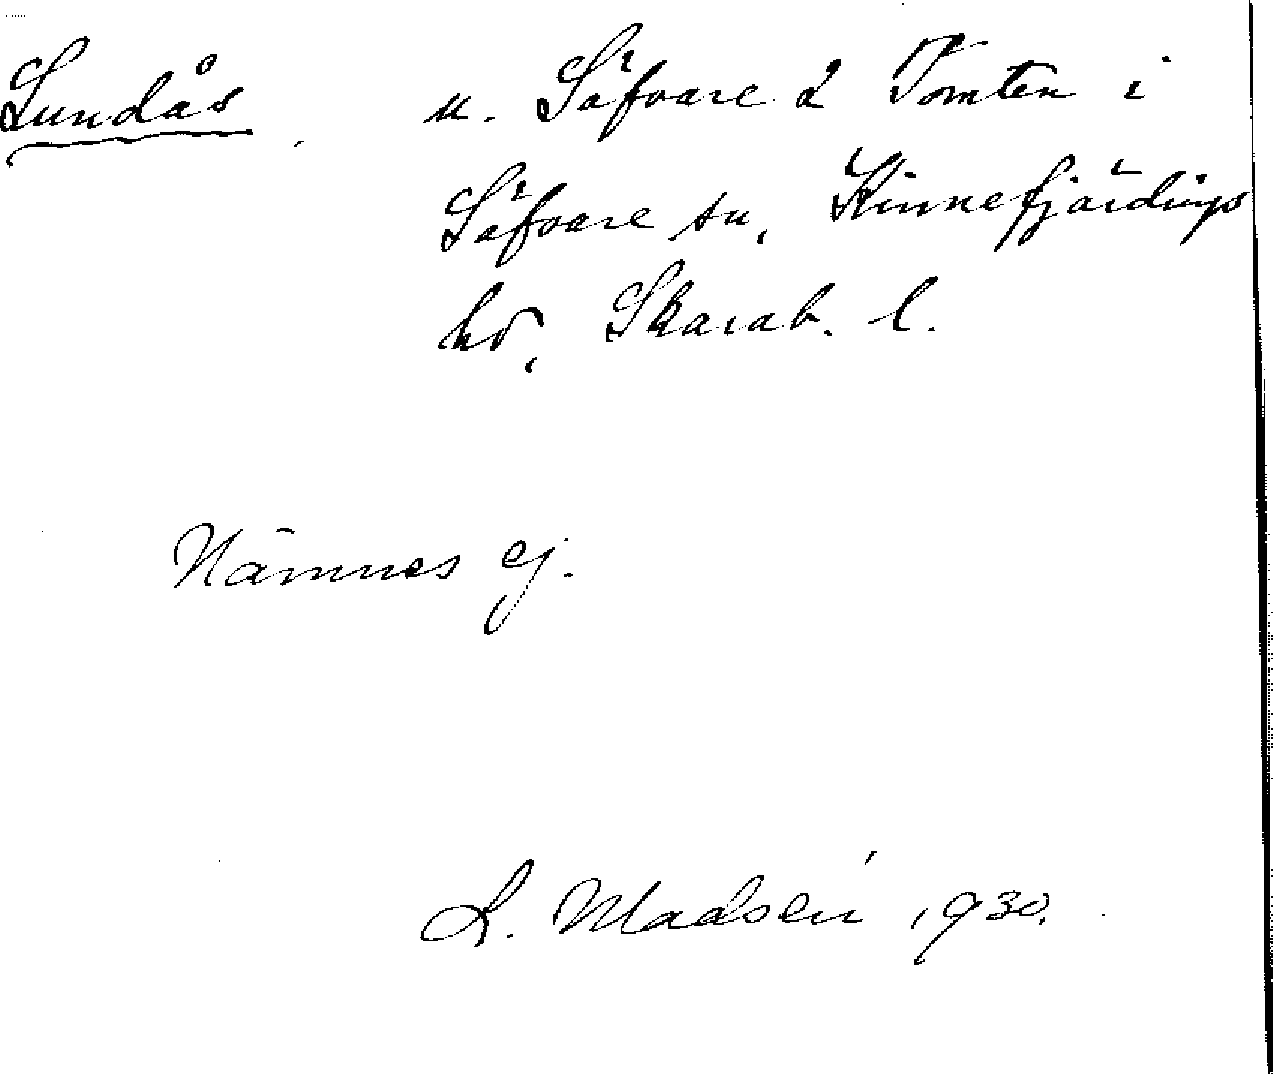 Lundås u. Säfvare 2 Tomten i
Säfvare sn, Kinnefjärdings
hd, Skarab. l.
Nämnes ej.
L. Madsén 1930.